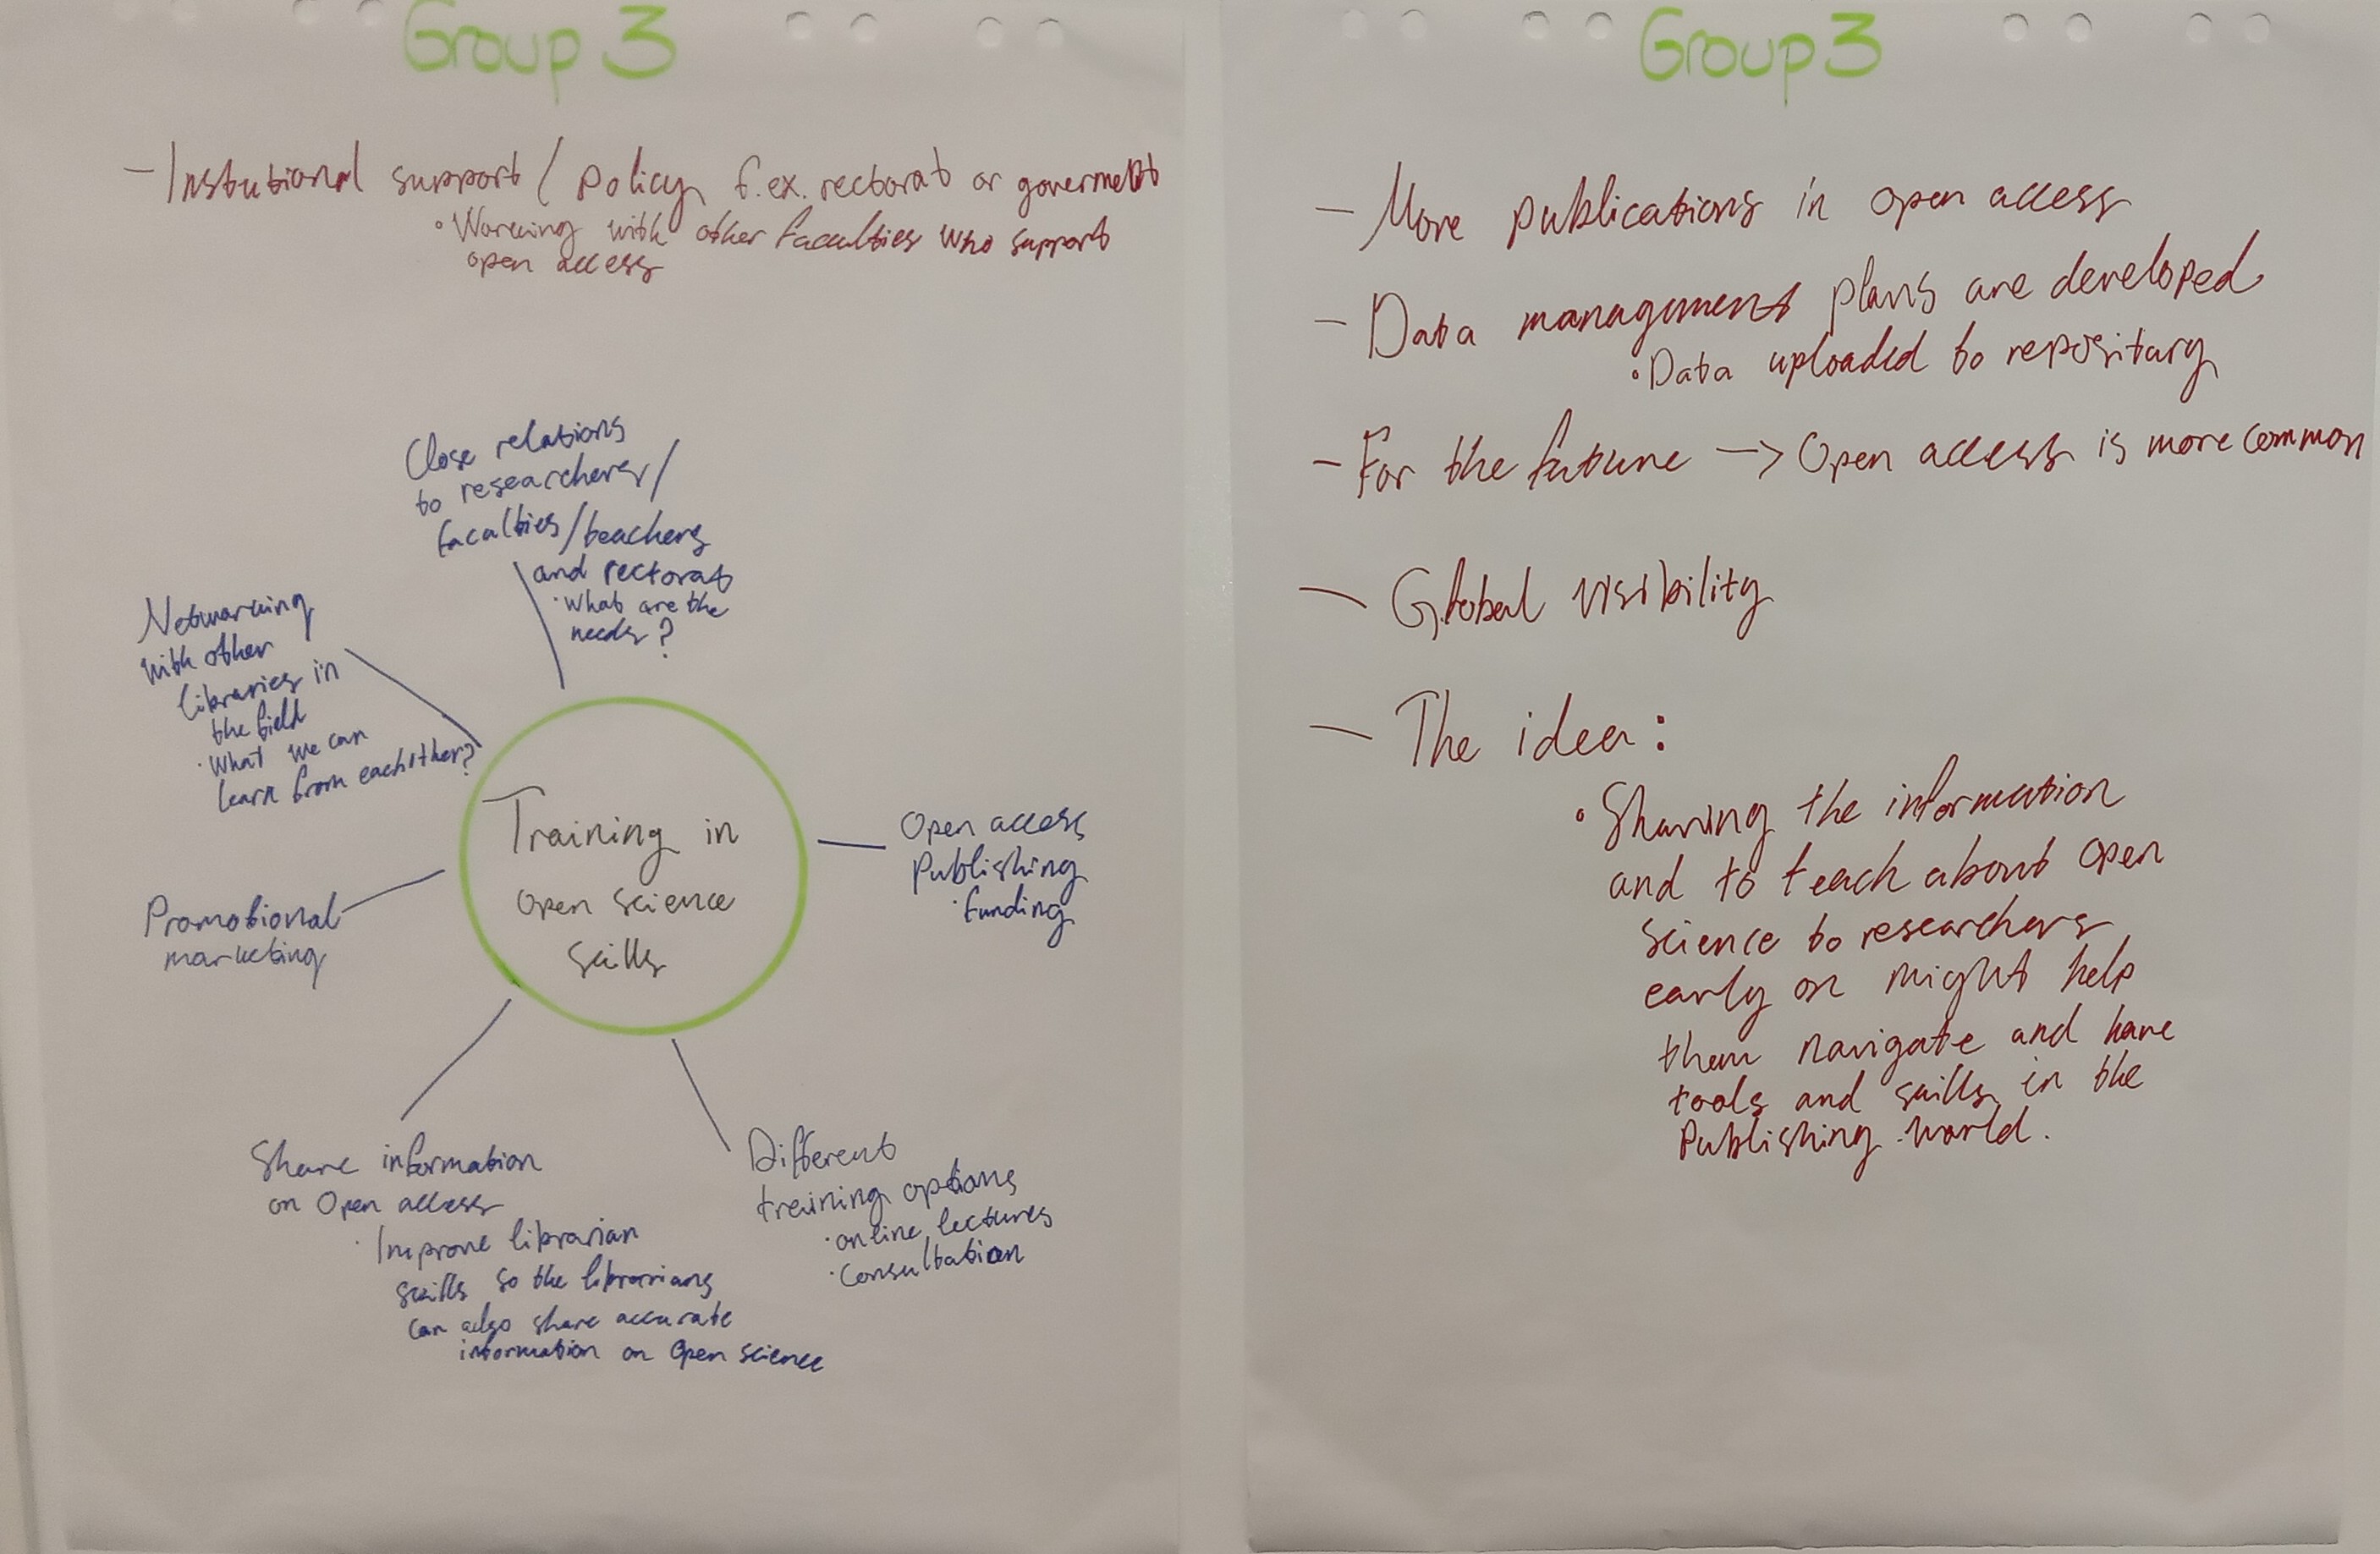 Group 3
- Instutional support / policy f.ex. rectorat or goverment
• Working with other faculties who support
open access
Close relations
to researchers/
faculties/teachers
and rectorat
• What are the
needs?
Networking
with other
libraries in
the field
• What we can
learn from eachother?
Training in
open science
skills
Open access
Publishing
• funding
Promotional
marketing
Share information
on Open access
• Improve librarian
skills so the librarians
can also share accurate
information on Open science
Different
training options
• online lectures
• consultation
Group 3
- More publications in open access
- Data management plans are developed
• Data uploaded to repositary
- For the future → Open access is more common
- Global visibility
- The idea:
• Sharing the information
and to teach about open
science to researchers
early on might help
them navigate and have
tools and skills in the
Publishing world.